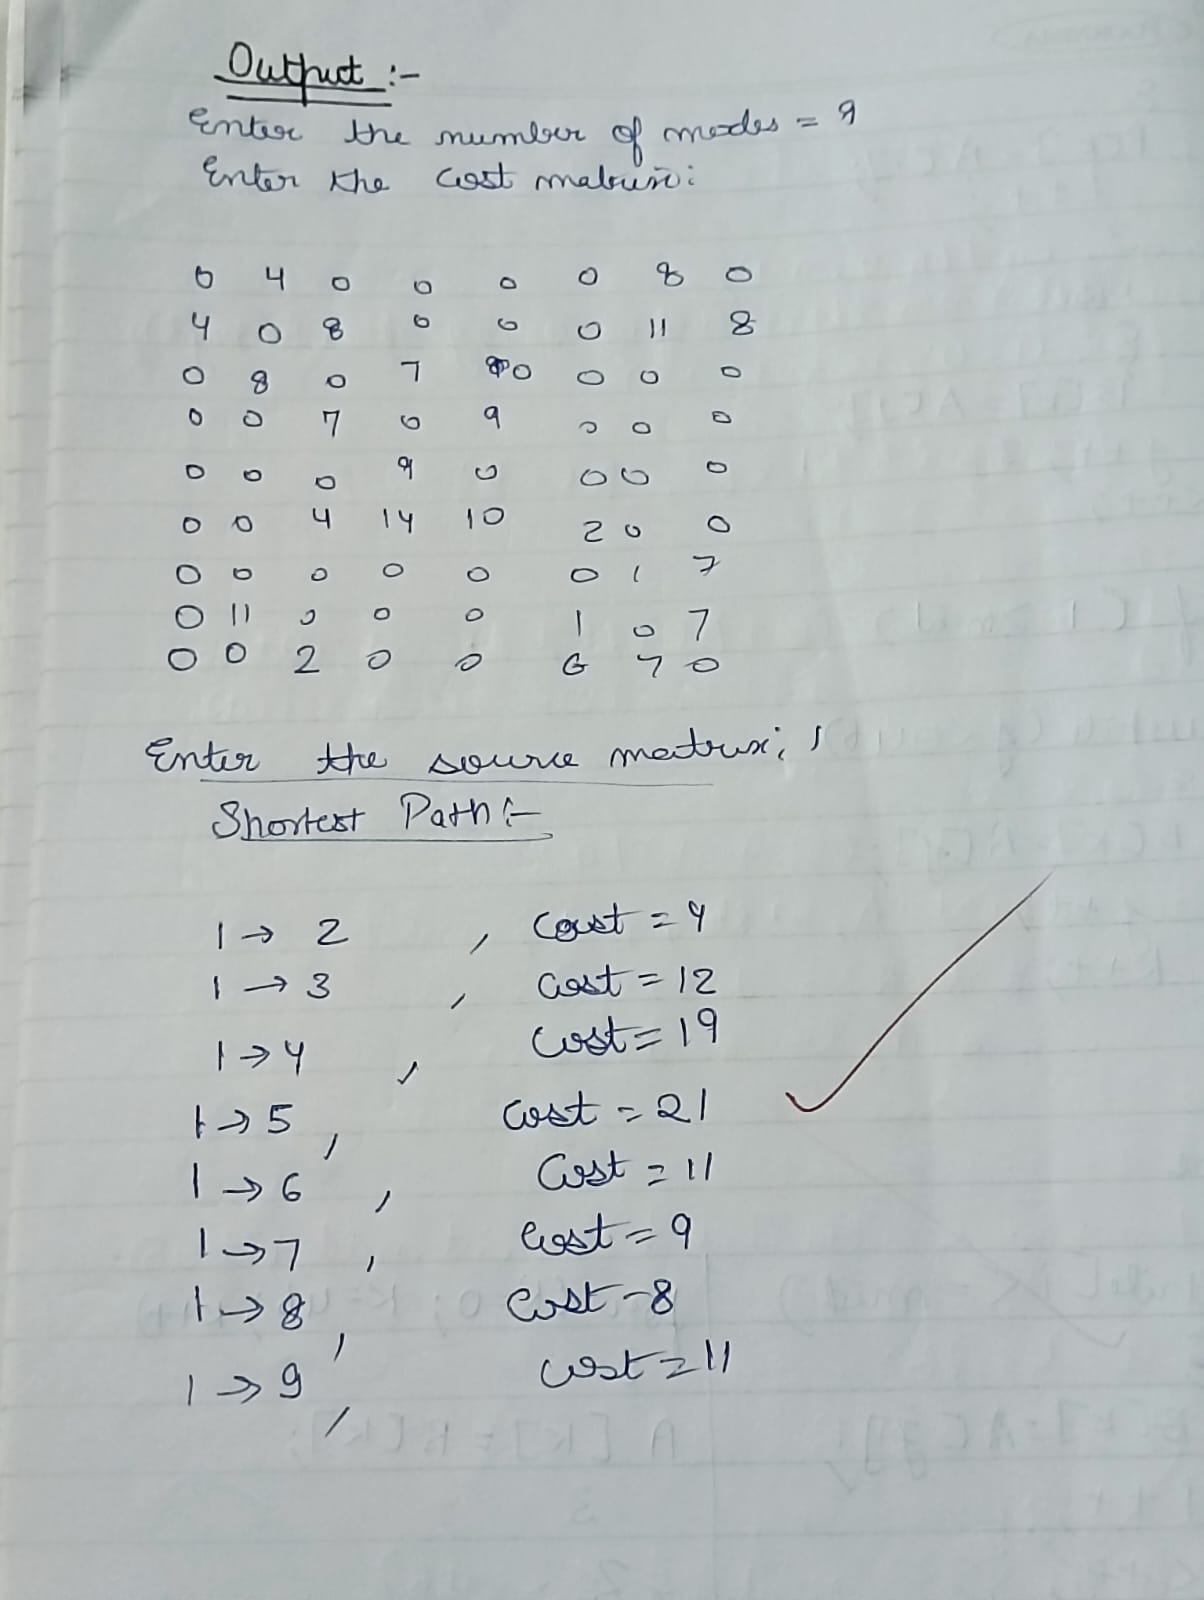 Output :-
Enter the number of nodes = 9
Enter the cost matrix:
0 4 0 0 0 0 8 0
4 0 8 0 0 0 11 8
0 8 0 7 0 0 0 0
0 0 7 0 9 0 0 0
0 0 0 9 0 0 0 0
0 0 4 14 10 2 0 0
0 0 0 0 0 0 1 7
0 11 0 0 0 1 0 7
0 0 2 0 0 6 7 0
Enter the source matrix: 1
Shortest Path :-
1 → 2 , Cost = 4
1 → 3 , Cost = 12
1 → 4 , Cost = 19
1 → 5 , Cost = 21
1 → 6 , Cost = 11
1 → 7 , Cost = 9
1 → 8 , Cost - 8
1 → 9 , Cost = 11